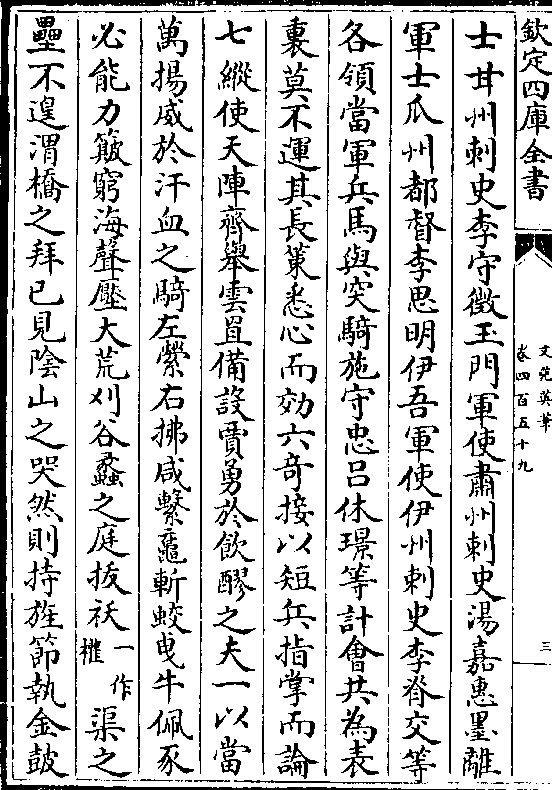 欽定四庫全書
文苑英華
卷四百五十九
三
士甘州刺史李守徵玉門軍使肅州刺史湯嘉惠墨離
軍士瓜州都督李思明伊吾軍使伊州刺史李脊交等
各領當軍兵馬與突騎施守忠吕休璟等計會共為表
裏莫不運其長策悉心而効六奇接以短兵指掌而論
七縱使天陣齊舉雲𠀇備設賈勇於飲醪之夫一以當
萬揚威於汗血之騎左縈右拂咸繫黿斬蛟曳牛佩豕
必能力簸窮海聲壓大荒刈谷蠡之庭拔袄一作楗渠之
壘不遑渭橋之拜已見陰山之哭然則持旌節執金鼓